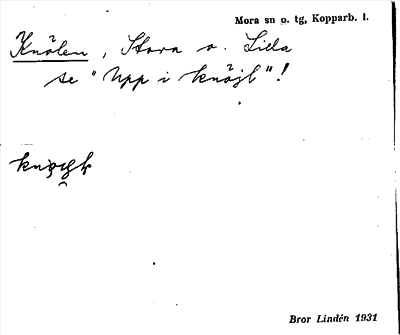 Mora sn o. tg, Kopparb. l.
Knölen, Stora o. Lilla
se "Upp i knöjl"!
Bror Lindén 1931